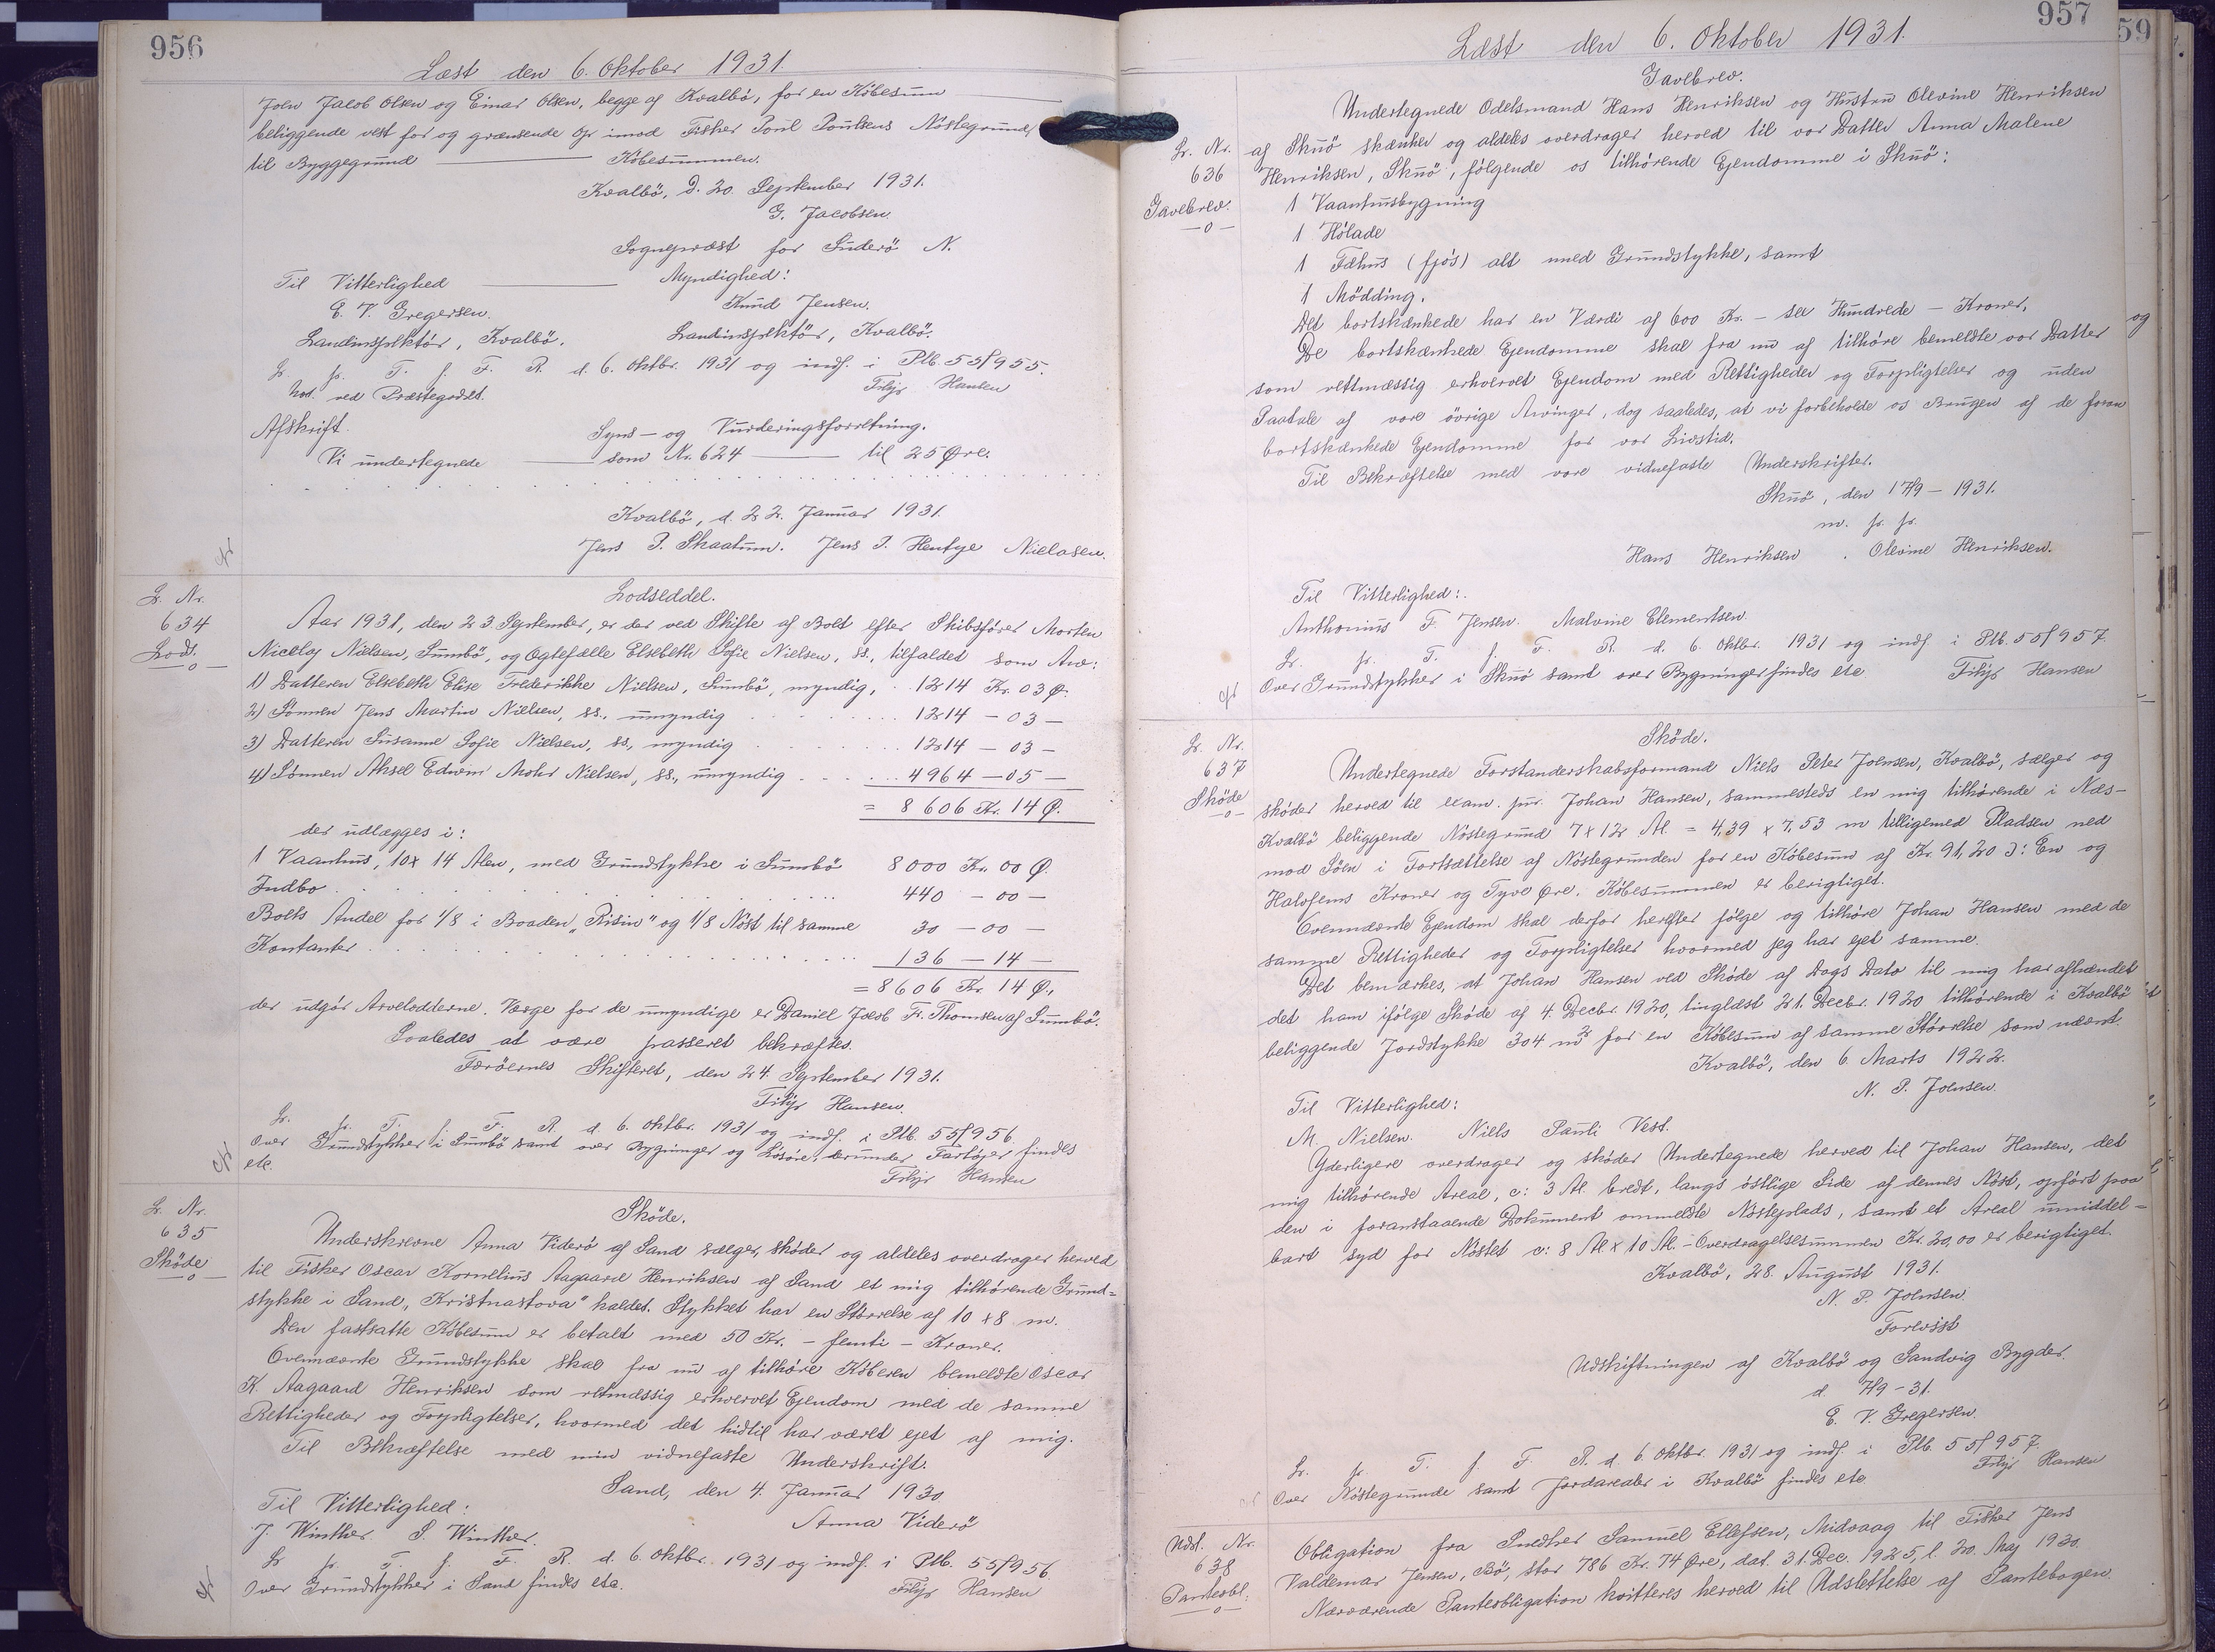 956
Læst den 6. Oktober 1931.
Joen Jacob Olsen og Einar Olsen, begge af Kvalbö, for en Købesum
beliggende vest for og grænsende op imod Fisker Poul Poulsens Nöstegrund,
til Byggegrund ——— Købesummen.
Kvalbö, d. 20. September 1931.
G. Jacobsen
Sognepræst for Suderö N.
Til Vitterlighed ——— Myndighed:
E. V. Gregersen. Knud Jensen.
Landinspektör, Kvalbö. Landinspektör, Kvalbö.
L. p. T. f. F. R. d. 6. Oktbr. 1931 og indf. i Ptb. 55f955.
not. ved Præstegodset. Filip Hansen
Afskrift. Syns- og Vurderingsforretning.
Vi undertegnede ——— som Nr. 624 ——— til 25 Øre.
Kvalbö, d. 22. Januar 1931.
Jens P. Skaalum. Jens P. Hentze Nielasen.
L. Nr.
634
Lods.
Lodseddel.
Aar 1931, den 23. September, er der ved Skifte af Bolt efter Skibsfører Morten
Nicolaj Nielsen, Sumbö, og Ægtefælle Elsebeth Sofie Nielsen, ss., tilfaldet som Arv:
1) Datteren Elsebeth Elise Frederikke Nielsen, Sumbö, myndig, . 1214 Kr. 03 Ø.
2) Sønnen Jens Martin Nielsen, ss., umyndig . . . 1214 - 03 -
3) Datteren Susanne Sofie Nielsen, ss, myndig . . . 1214 - 03 -
4) Sønnen Aksel Edwin Mohr Nielsen, ss., umyndig . . . 4964 - 05 -
= 8606 Kr. 14 Ø.
der udlægges i:
1 Vaanhus, 10 x 14 Alen, med Grundstykke i Sumbö 8000 Kr. 00 Ø.
Indbo . . . 440 - 00 -
Bolts Andel for 1/8 i Baaden "Risin" og 1/8 Nöst til samme 30 - 00 -
Kontanter . . . 136 - 14 -
= 8606 Kr. 14 Ø.
der udgör Arvelodderne. Værge for de umyndige er Daniel Jacob Fr. Thomsen af Sumbö.
Saaledes at være passeret bekræftes.
Færöernes Skifteret, den 24. September 1931.
Filip Hansen.
L. p. T. f. F. R. d. 6. Oktbr. 1931 og indf. i Ptb. 55f956.
Over Grundstykker i Sumbö samt over Bygninger og Løsöre, derunder Fartöjer findes
etc. Filip Hansen
L. Nr.
635
Sköde
Sköde.
Underskrevne Anna Viderö af Sand sælger, sköder og aldeles overdrager herved
til Fisker Oscar Kornelius Aagaard Henriksen af Sand et mig tilhörende Grund=
stykke i Sand, "Kristnastova" kaldet. Stykket har en Størrelse af 10 x 8 m.
Den fastsatte Købesum er betalt med 50 Kr. - femti - Kroner.
Ovennævnte Grundstykke skal fra nu af tilhöre Köberen bemeldte Oscar
K. Aagaard Henriksen som retmæssig erhvervet Ejendom med de samme
Rettigheder og Forpligtelser, hvormed det hidtil har været ejet af mig.
Til Bekræftelse med min vidnefaste Underskrift.
Sand, den 4. Januar 1930.
Til Vitterlighed: Anna Viderö
J. Winther. S. Winther.
L. p. T. f. F. R. d. 6. Oktbr. 1931 og indf. i Ptb. 55f956
Over Grundstykker i Sand findes etc. Filip Hansen
957
59
Læst den 6. Oktober 1931.
Gavebrev.
L. Nr.
636
Gavebrev.
Undertegnede Odelsmand Hans Henriksen og Hustru Olevine Henriksen
af Skuö skænker og aldeles overdrager herved til vor Datter Anna Malene
Henriksen, Skuö, følgende os tilhørende Ejendomme i Skuö:
1 Vaanhusbygning
1 Hølade
1 Fæhus (fjós) alt med Grundstykke, samt
1 Mödding.
Det bortskænkede har en Værdi af 600 Kr. - sex Hundrede - Kroner.
De bortskænkede Ejendomme skal fra nu af tilhöre bemeldte vor Datter og
som retmæssig erhvervet Ejendom med Rettigheder og Forpligtelser og uden
Paatale af vore övrige Arvinger, dog saaledes, at vi forbeholde os Brugen af de foran
bortskænkede Ejendomme for vor Livstid.
Til Bekræftelse med vore vidnefaste Underskrifter.
Skuö, den 17/9 - 1931.
m. p. p.
Hans Henriksen . Olevine Henriksen.
Til Vitterlighed:
Anthonius F. Jensen. Malvine Clementsen.
L. p. T. f. F. R. d. 6. Oktbr. 1931 og indf. i Ptb. 55f957.
Over Grundstykker i Skuö samt over Bygninger findes etc. Filip Hansen
L. Nr.
637
Sköde
Sköde.
Undertegnede Forstanderskabsformand Niels Peter Joensen, Kvalbö, sælger og
sköder herved til exam. jur. Johan Hansen, sammesteds en mig tilhörende i Næs-
Kvalbö beliggende Nöstegrund 7 x 12 Al. = 4,39 x 7,53 m tilligemed Pladsen ned
mod Söen i Fortsættelse af Nöstegrunden for en Købesum af Kr. 91,20 ɔ: En og
Halvfems Kroner og Tyve Øre. Købesummen er berigtiget.
Ovennævnte Ejendom skal derfor herefter følge og tilhöre Johan Hansen med de
samme Rettigheder og Forpligtelser hvormed jeg har ejet samme.
Det bemærkes, at Johan Hansen ved Sköde af Dags Dato til mig har afhændet
det ham ifølge Sköde af 4. Decbr. 1920, tinglæst 21. Decbr. 1920 tilhörende i Kvalbö
beliggende Jordstykke 304 m² for en Købesum af samme Störrelse som nævnt.
Kvalbö, den 6. Marts 1922.
N. P. Joensen.
Til Vitterlighed:
M. Nielsen. Niels Pauli Vest.
Yderligere overdrager og sköder Undertegnede herved til Johan Hansen, det
mig tilhörende Areal, c: 3 Al. bredt, langs östlige Side af dennes Nöst, opfört paa
den i foranstaaende Dokument ommeldte Nösteplads, samt et Areal umiddel=
bart syd for Nöstet c: 8 Al x 10 Al. - Overdragelsessummen Kr. 20,00 er berigtiget.
Kvalbö, 28. August 1931.
N. P. Joensen.
Forevist
Udskiftningen af Kvalbö og Sandvig Bygder.
d. 7/9 - 31.
E. V. Gregersen.
L. p. T. f. F. R. d. 6. Oktbr. 1931 og indf. i Ptb. 55f957.
Over Nöstegrunde samt Jordarealer i Kvalbö findes etc. Filip Hansen
Udsl. Nr.
638
Panteobl.
Obligation fra Snedker Samuel Ellefsen, Midvaag til Fisker Jens
Valdemar Jensen, Bö, stor 786 Kr. 74 Øre, dat. 31. Dec. 1925, l. 20. Maj 1930.
Nærværende Panteobligation kvitteres herved til Udslettelse af Pantebogen.